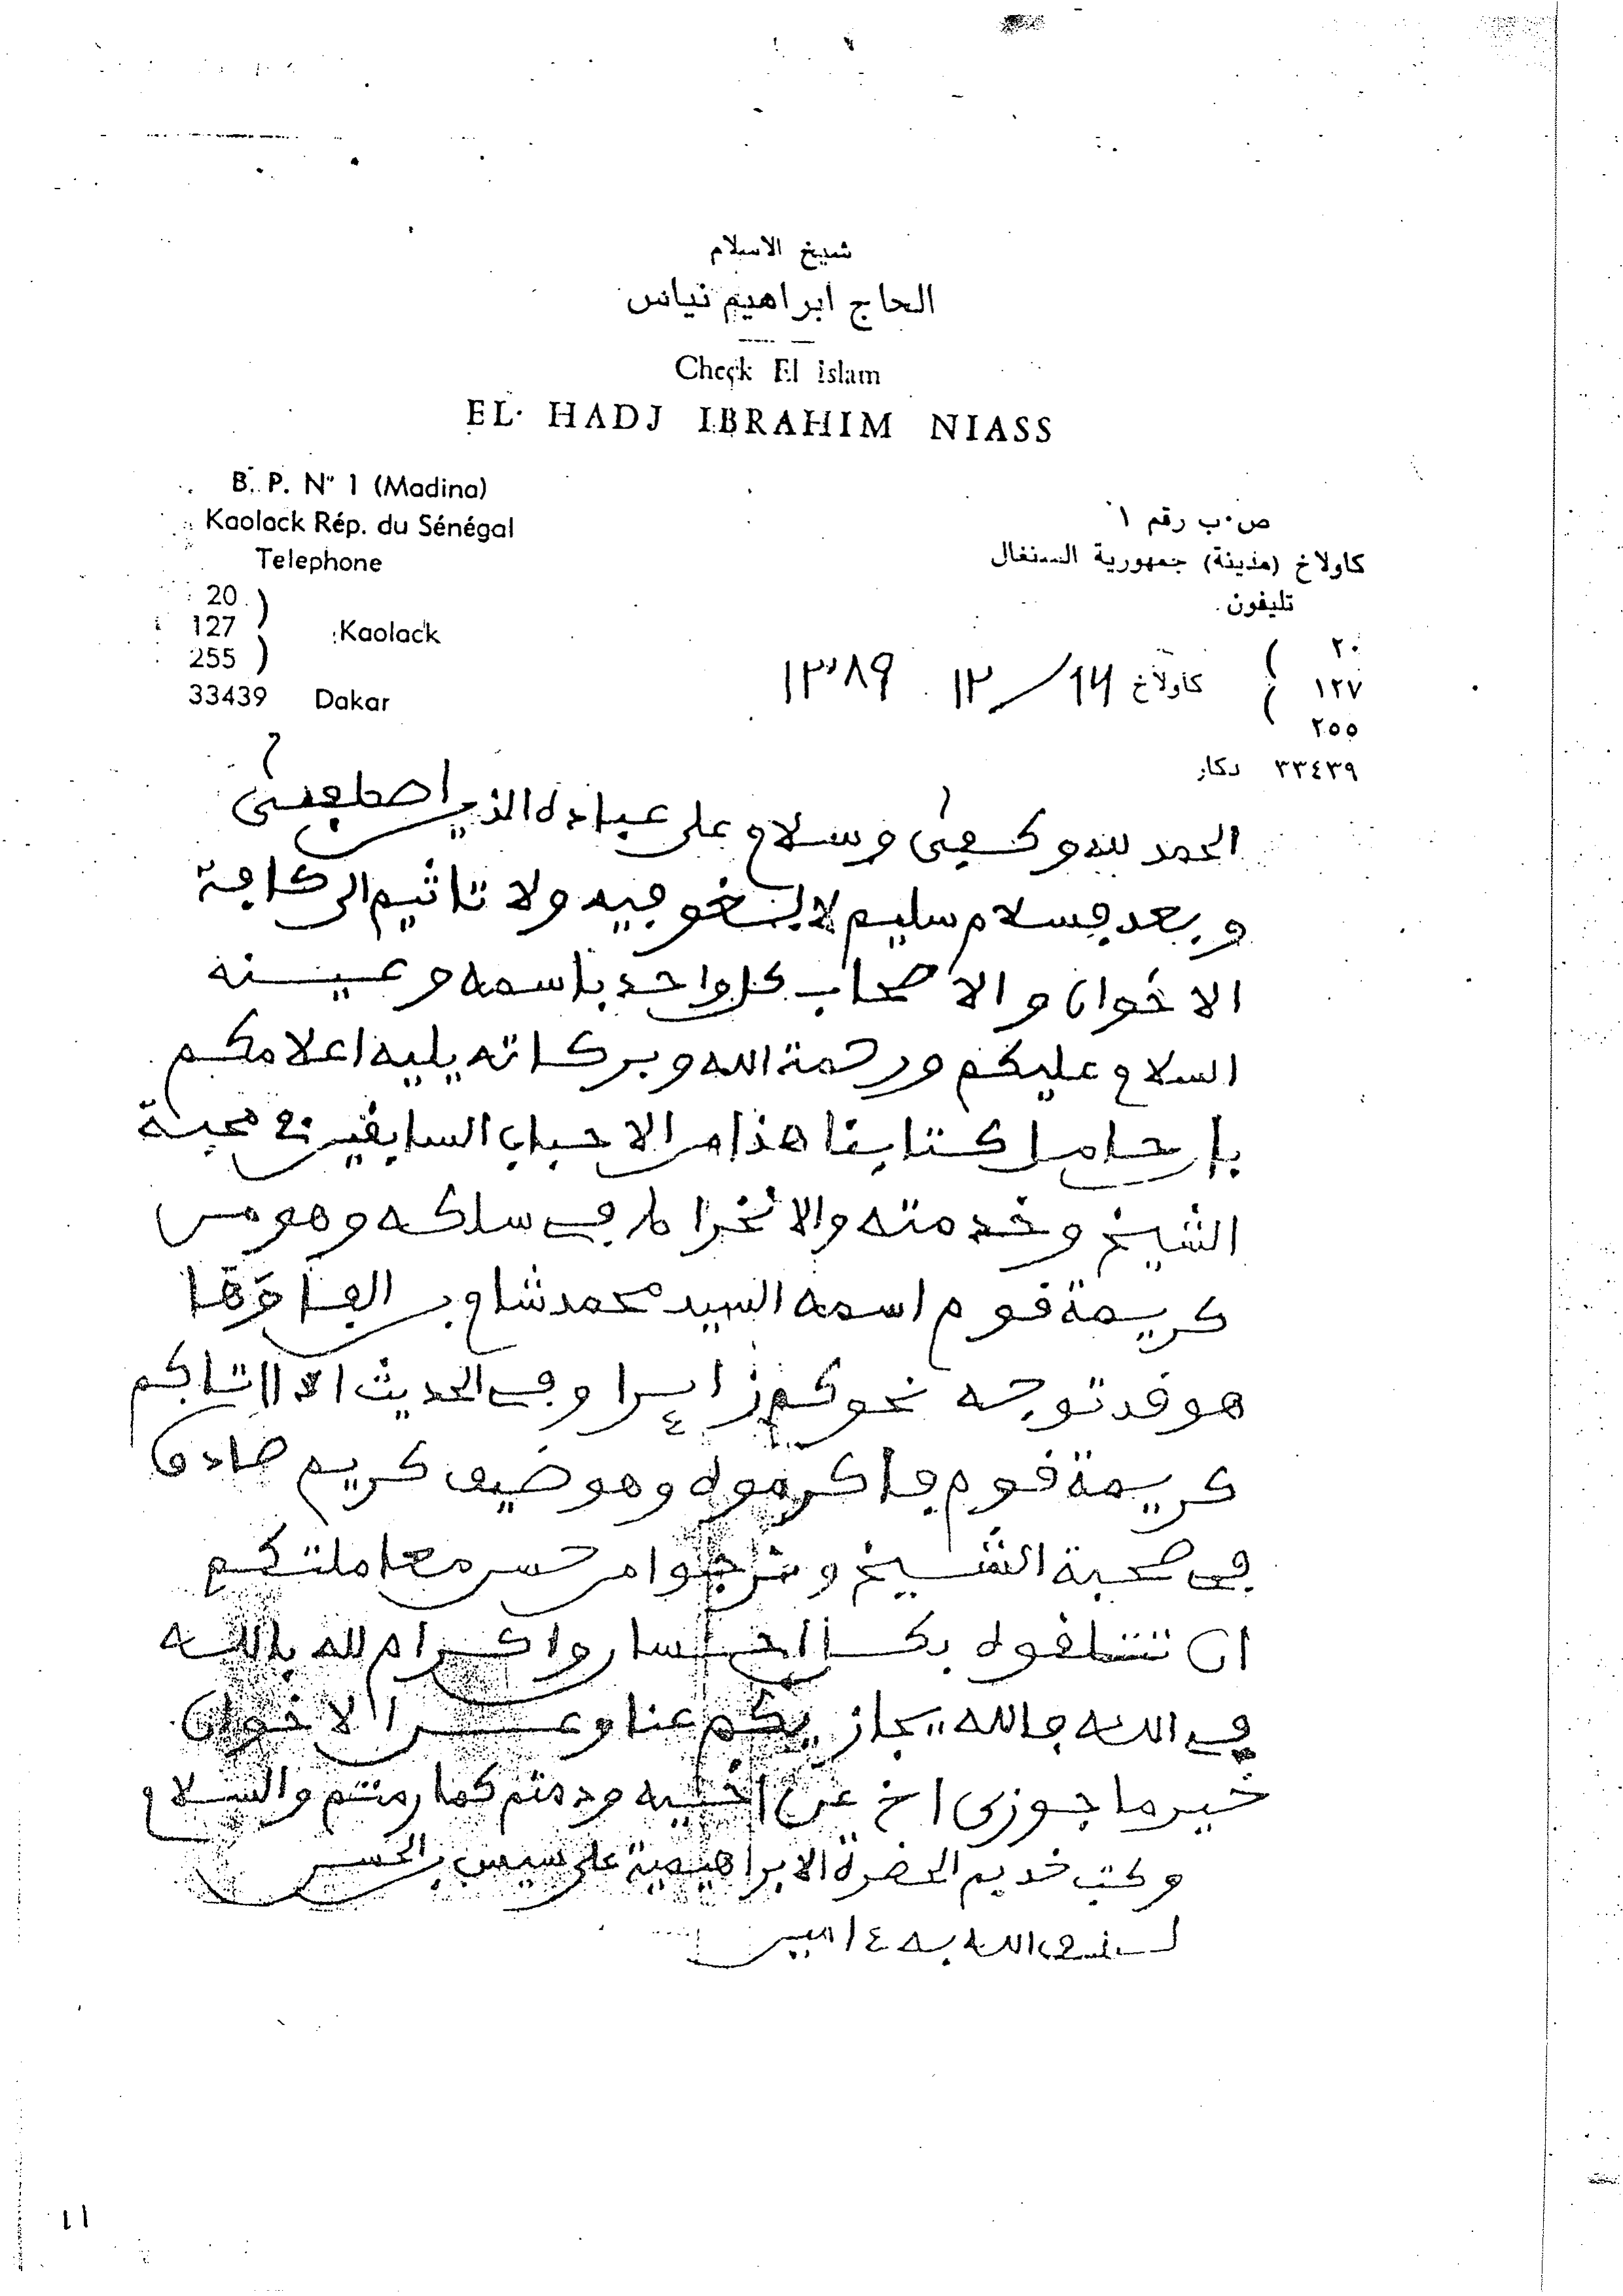 شيخ الاسلام
الحاج ابراهيم نياس
Check El islam
EL. HADJ IBRAHIM NIASS
B. P. N° 1 (Madina)
Kaolack Rép. du Sénégal
Telephone
20
127
255
Kaolack
33439 Dakar
ص.ب رقم ١
كاولاخ (مدينة) جمهورية السنغال
تليفون
٢٠
١٢٧
٢٥٥
٣٣٤٣٩ دكار
كاولاخ
الحمد لله وكفى وسلام على عباده الذين اصطفى
وبعد فسلام سليم لا لغو فيه ولا تاثيم الى كافة
الاخوان والاصحاب كل واحد باسمه وعينه
السلام عليكم ورحمة الله وبركاته يليه اعلامكم
بان حامل كتابنا هذا من الاحباب السابقين في محبة
الشيخ وخدمته والانخراط في سلكه وهو من
كريمة قوم اسمه السيد محمد شاو بن
هو قد توجه نحوكم زايرا وفي الحديث اذا اتاكم
كريمة قوم فاكرموه وهو ضيف كريم صادق
في صحبة الشيخ ونرجوا من حسن معاملتكم
ان تتلقوه بكل احسان واكرام لله بالله
في الله فالله يجازيكم عنا وعن الاخوان
خير ما جوزى اخ عن اخيه ودمتم كما رمتم والسلام
وكتب خديم الحضرة الابراهيمية على سيس بن الحسن
الله به ءامين
11